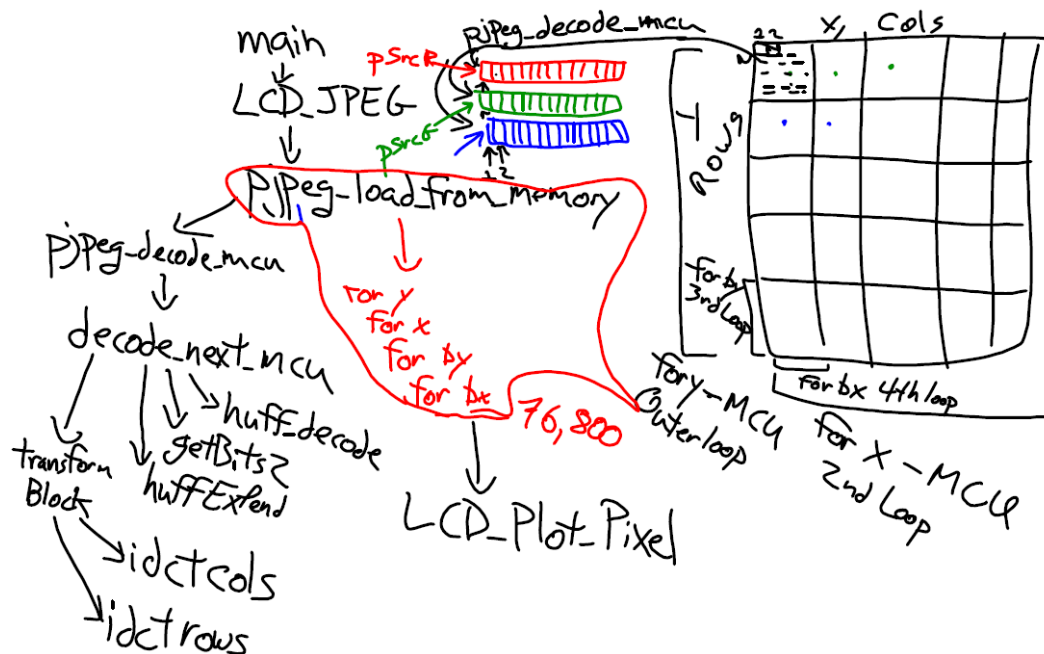 main
LCD_JPEG
pjpeg_load_from_memory
pjpeg_decode_mcu
decode_next_mcu
transform
Block
huffExtend
getBits2
huff_decode
idctcols
idctrows
for y
for x
for by
for bx
76,800
LCD_Plot_Pixel
pjpeg_decode_mcu
pSrcR
pSrcG
1 2
1 2
X,
Cols
Y
Rows
for by
3rd loop
for bx 4th loop
for y-MCU
Outerloop
for X-MCU
2nd Loop